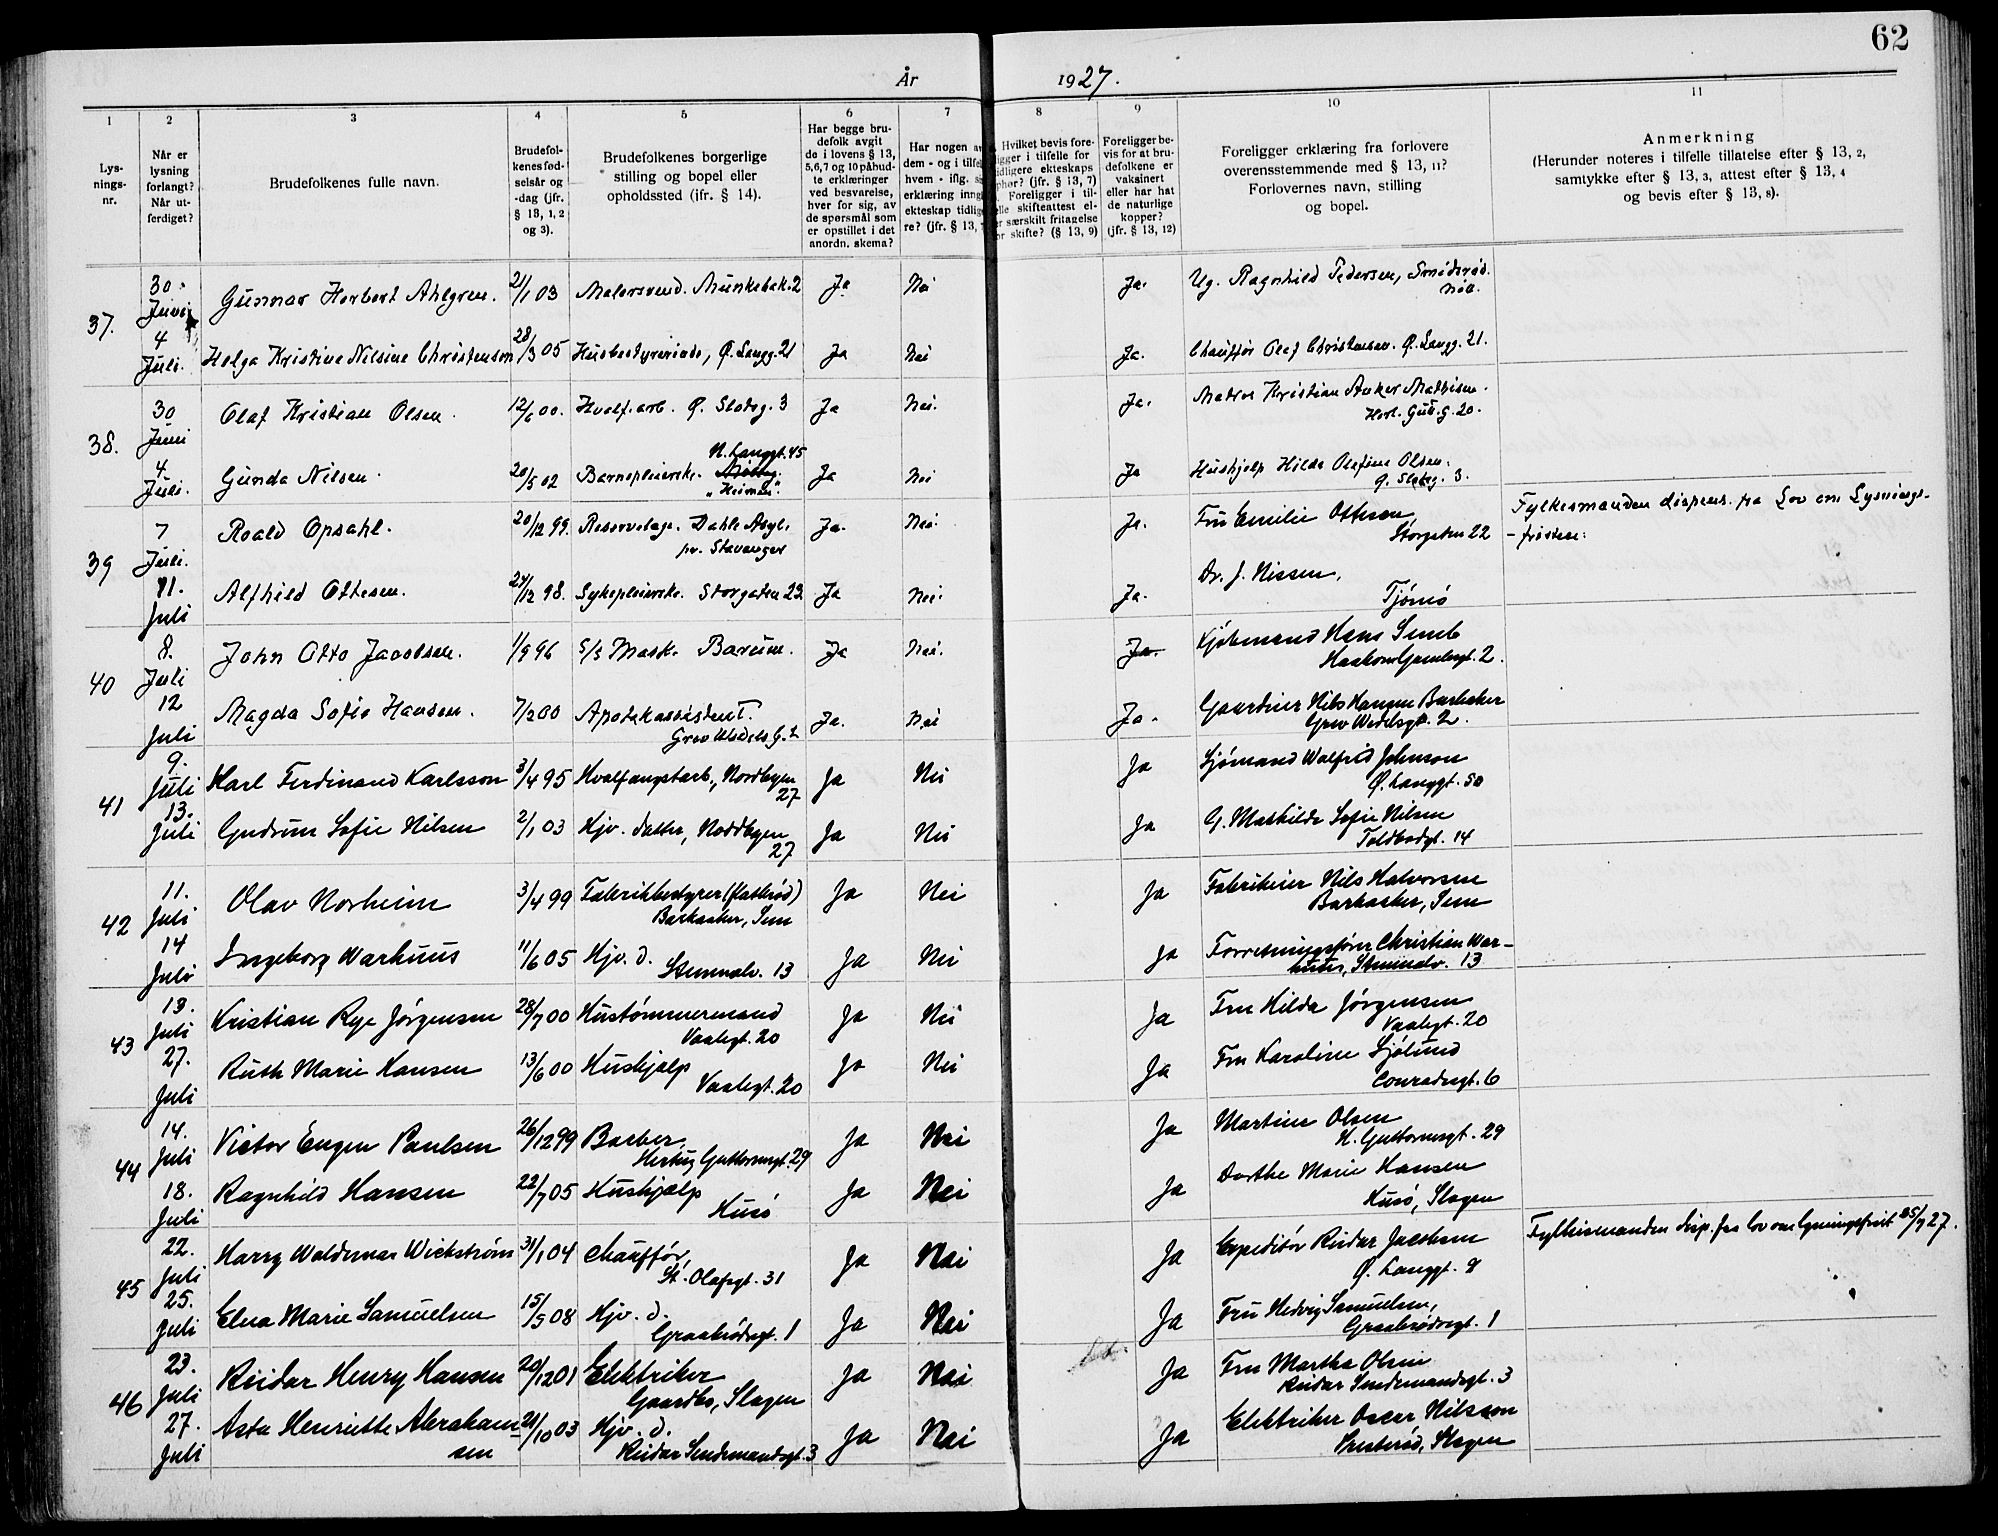 62
År 1927.
1 2 3 4 5 6 7 8 9 10 11
Lys-
nings-
nr.
Når er
lysning
forlangt?
Når ut-
ferdiget?
Brudefolkenes fulle navn.
Brudefol-
kenes fød-
selsår og
-dag (jfr.
§ 13, 1, 2
og 3).
Brudefolkenes borgerlige
stilling og bopel eller
opholdssted (jfr. § 14).
Har begge bru-
defolk avgit
de i lovens § 13,
5,6,7 og 10 påbud-
te erklæringer
ved besvarelse,
hver for sig, av
de spørsmål som
er opstillet i det
anordn. skema?
Har nogen av
dem - og i tilfel
hvem - iflg. s
erklæring inng
ekteskap tidlig
re? (jfr. § 13,
Hvilket bevis fore-
igger i tilfelle for
idligere ekteskaps
phør? (jfr. § 13, 7)
Foreligger i til-
elle skifteattest el-
er særskilt fritagelse
or skifte? (§ 13, 9)
Foreligger be-
vis for at bru-
defolkene er
vaksinert
eller har hat
de naturlige
kopper?
(jfr. § 13, 12)
Foreligger erklæring fra forlovere
overensstemmende med § 13, 11?
Forlovernes navn, stilling
og bopel.
Anmerkning
(Herunder noteres i tilfelle tillatelse efter § 13, 2,
samtykke efter § 13, 3, attest efter § 13, 4
og bevis efter § 13, 8).
37.
30. Juni Gunnar Herbert Ahlgren. 21/1 03 Malersvend. Munkebak. 2 Ja Nei Ja. Ug. Ragnhild Pedersen, Smidsrød.
Nøt.
4 Juli. Helga Kristine Nilsine Christensen 28/3 05 Husbestyrerinde, Ø. Langg. 21 Ja Nei Ja. Chauffør Olaf Christensen. Ø. Langg. 21.
38.
30 Juni Olaf Kristian Olsen. 12/6 00. Hvalf. arb. Ø. Slotsg. 3 Ja Nei. Ja. Matros Kristian Anker Mathisen.
Hert. Gut. G. 20.
N. Langgt. 45
4. Juli. Gunda Nilsen. 20/5 02 Barnepleierske. Ja Nei Ja Hushjelp Hilda Olefine Olsen.
"Heimen". Ø. Slotsg. 3.
39
7 Juli. Roald Opsahl. 20/12 99. Reservelæge. Dahle Asyl. Ja. Nei. Ja. Fru Emilie Ottesen Fylkesmanden dispens. fra Lov om Lysnings-
pr. Stavanger Storgaten 22 -fristene:
11. Juli Alfhild Ottesen. 24/12 98. Sykepleierske. Storgaten 22. Ja Nei. Ja. Dr. J. Nissen,
Tjømø
40
8. Juli John Otto Jacobsen. 1/9 96 S/S Mask. Barum. Ja Nei. Ja. Kjøbmand Hans Semb
Haakon Gamlesgt. 2.
12 Juli Magda Sofie Hansen. 7/2 00 Apotekassistent. Ja. Nei Ja. Gaardeier Nils Hansen Barkaker
Grev Wedels G. 2 Grev Wedelsgt. 2.
41
9. Juli Karl Ferdinand Karlsson 3/4 95 Hvalfangstarb., Nordbyen Ja Nei Ja Sjømand Walfrid Johnson
27 Ø. Langgt. 50
13. Juli Gudrun Sofie Nilsen 2/1 03 Hjv. datter, Nordbyen Ja Nei Ja G. Mathilde Sofie Nilsen
27 Toldbodgt. 14
42
11. Juli Olav Norheim 3/4 99 Fabrikbestyrer Ja Nei Ja Fabrikeier Nils Halvorsen
Barkaaker, Sem Barkaaker, Sem
14 Juli Ingeborg Warhuus 11/6 05 Hjv. d. Ja Nei Ja Forretningsfører Christian War-
Stenmalv. 13 huus, Stenmalv. 13
43
13. Juli Kristian Rye Jørgensen 28/7 00 Hustømmermand Ja Nei Ja Fru Hilda Jørgensen
Vaalegt. 20 Vaalegt. 20
27. Juli Ruth Marie Hansen 13/6 00 Hushjælp Ja Nei Ja Fru Karoline Sjølund
Vaalegt. 20 Conradisgt. 6
44
14. Juli Victor Eugen Paulsen 26/12 99 Barber Ja Nei Ja Martin Olsen
Hertug Guttormsgt. 29 H. Guttormsgt. 29
18. Juli Ragnhild Hansen 22/7 05 Hushjælp Ja Nei Ja Dorthe Marie Hansen
Husø Husø, Slagen
45
22. Juli Harry Waldemar Wickstrøm 31/1 04 Chauffør Ja Nei Ja Expeditør Reidar Jacobsen Fylkesmanden disp. fra lov om lysningsfrist 25/7 27.
St. Olafsgt. 31 Ø. Langgt. 8
25. Juli Elna Marie Samuelsen 15/5 08 Hjv. d. Ja Nei Ja Fru Hedvig Samuelsen,
Graabrødregt. 1 Graabrødregt. 1
46
23. Juli Reidar Henry Hansen 20/12 01 Elektriker Ja Nei Ja Fru Martha Olsen
Gaardbo, Slagen Reidar Sendemandsgt. 3
27. Juli Asta Henriette Abraham- 21/10 03 Hjv. d. Ja Nei Ja Elektriker Oscar Nilsson
sen Reidar Sendemandsgt. 3 Presterød, Slagen